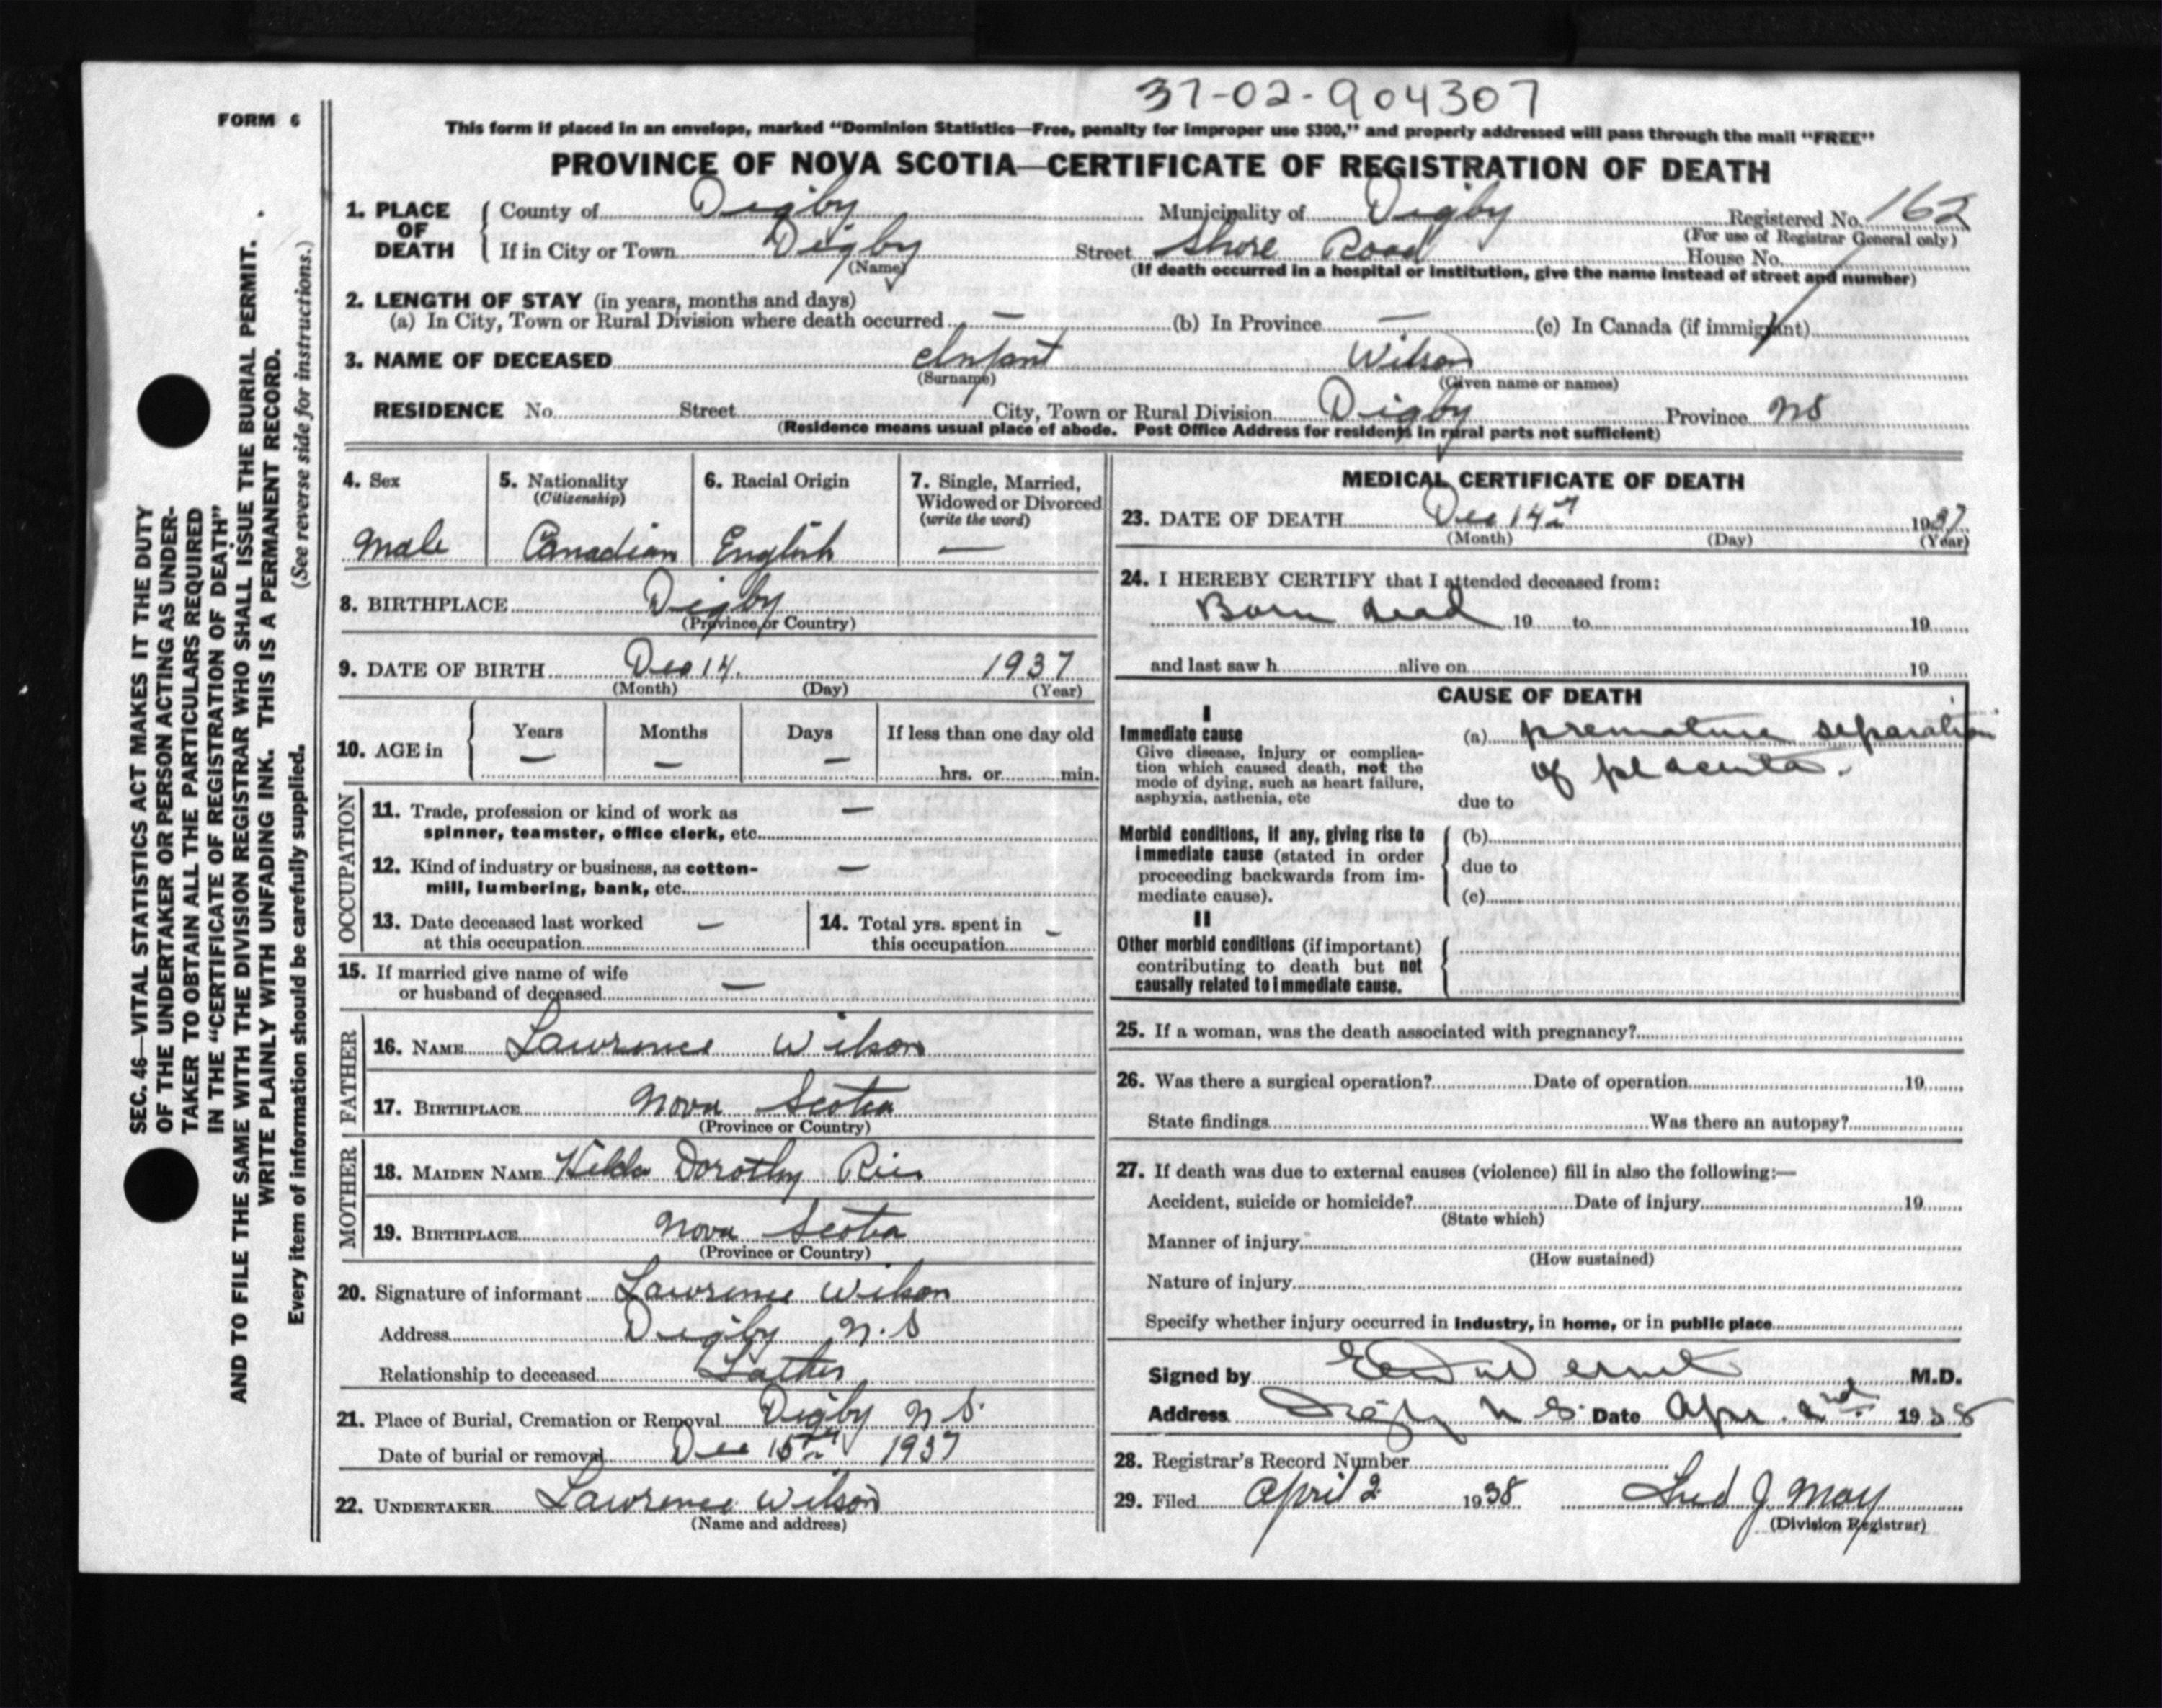 37-02-904307
FORM 6
This form if placed in an envelope, marked "Dominion Statistics—Free, penalty for improper use $300," and properly addressed will pass through the mail "FREE"
PROVINCE OF NOVA SCOTIA—CERTIFICATE OF REGISTRATION OF DEATH
SEC. 46—VITAL STATISTICS ACT MAKES IT THE DUTY
OF THE UNDERTAKER OR PERSON ACTING AS UNDER-
TAKER TO OBTAIN ALL THE PARTICULARS REQUIRED
IN THE "CERTIFICATE OF REGISTRATION OF DEATH"
AND TO FILE THE SAME WITH THE DIVISION REGISTRAR WHO SHALL ISSUE THE BURIAL PERMIT.
WRITE PLAINLY WITH UNFADING INK. THIS IS A PERMANENT RECORD.
Every item of information should be carefully supplied. (See reverse side for instructions.)
1. PLACE OF DEATH
County of Digby Municipality of Digby Registered No. 162
(For use of Registrar General only)
If in City or Town Digby Street Shore Road House No.
(Name) (If death occurred in a hospital or institution, give the name instead of street and number)
2. LENGTH OF STAY (in years, months and days)
(a) In City, Town or Rural Division where death occurred — (b) In Province — (c) In Canada (if immigrant)
3. NAME OF DECEASED Infant Wilson
(Surname) (Given name or names)
RESIDENCE No. Street City, Town or Rural Division Digby Province NS
(Residence means usual place of abode. Post Office Address for residents in rural parts not sufficient)
4. Sex
Male
5. Nationality
(Citizenship)
Canadian
6. Racial Origin
English
7. Single, Married,
Widowed or Divorced
(write the word)
—
8. BIRTHPLACE Digby
(Province or Country)
9. DATE OF BIRTH Dec 14. 1937
(Month) (Day) (Year)
10. AGE in
Years Months Days If less than one day old
— — — hrs. or min.
OCCUPATION
11. Trade, profession or kind of work as —
spinner, teamster, office clerk, etc.
12. Kind of industry or business, as cotton- —
mill, lumbering, bank, etc.
13. Date deceased last worked —
at this occupation
14. Total yrs. spent in —
this occupation
15. If married give name of wife
or husband of deceased —
FATHER
16. NAME Lawrence Wilson
17. BIRTHPLACE Nova Scotia
(Province or Country)
MOTHER
18. MAIDEN NAME Hilda Dorothy
19. BIRTHPLACE Nova Scotia
(Province or Country)
20. Signature of informant Lawrence Wilson
Address Digby N.S
Relationship to deceased Father
21. Place of Burial, Cremation or Removal Digby N S.
Date of burial or removal Dec 15th 1937
22. UNDERTAKER Lawrence Wilson
(Name and address)
MEDICAL CERTIFICATE OF DEATH
23. DATE OF DEATH Dec 14th 1937
(Month) (Day) (Year)
24. I HEREBY CERTIFY that I attended deceased from:
Born dead 19 to 19
and last saw h alive on 19
CAUSE OF DEATH
I
Immediate cause
Give disease, injury or complica-
tion which caused death, not the
mode of dying, such as heart failure,
asphyxia, asthenia, etc
(a) premature separation
of placenta.
due to
Morbid conditions, if any, giving rise to
immediate cause (stated in order
proceeding backwards from im-
mediate cause).
(b)
due to
(c)
II
Other morbid conditions (if important)
contributing to death but not
causally related to immediate cause.
25. If a woman, was the death associated with pregnancy?
26. Was there a surgical operation? Date of operation 19
State findings Was there an autopsy?
27. If death was due to external causes (violence) fill in also the following:—
Accident, suicide or homicide? Date of injury 19
(State which)
Manner of injury
(How sustained)
Nature of injury
Specify whether injury occurred in industry, in home, or in public place
Signed by M.D.
Address Digby N S. Date Apr. 2nd 1938
28. Registrar's Record Number
29. Filed April 2 1938 Fred J May
(Division Registrar)